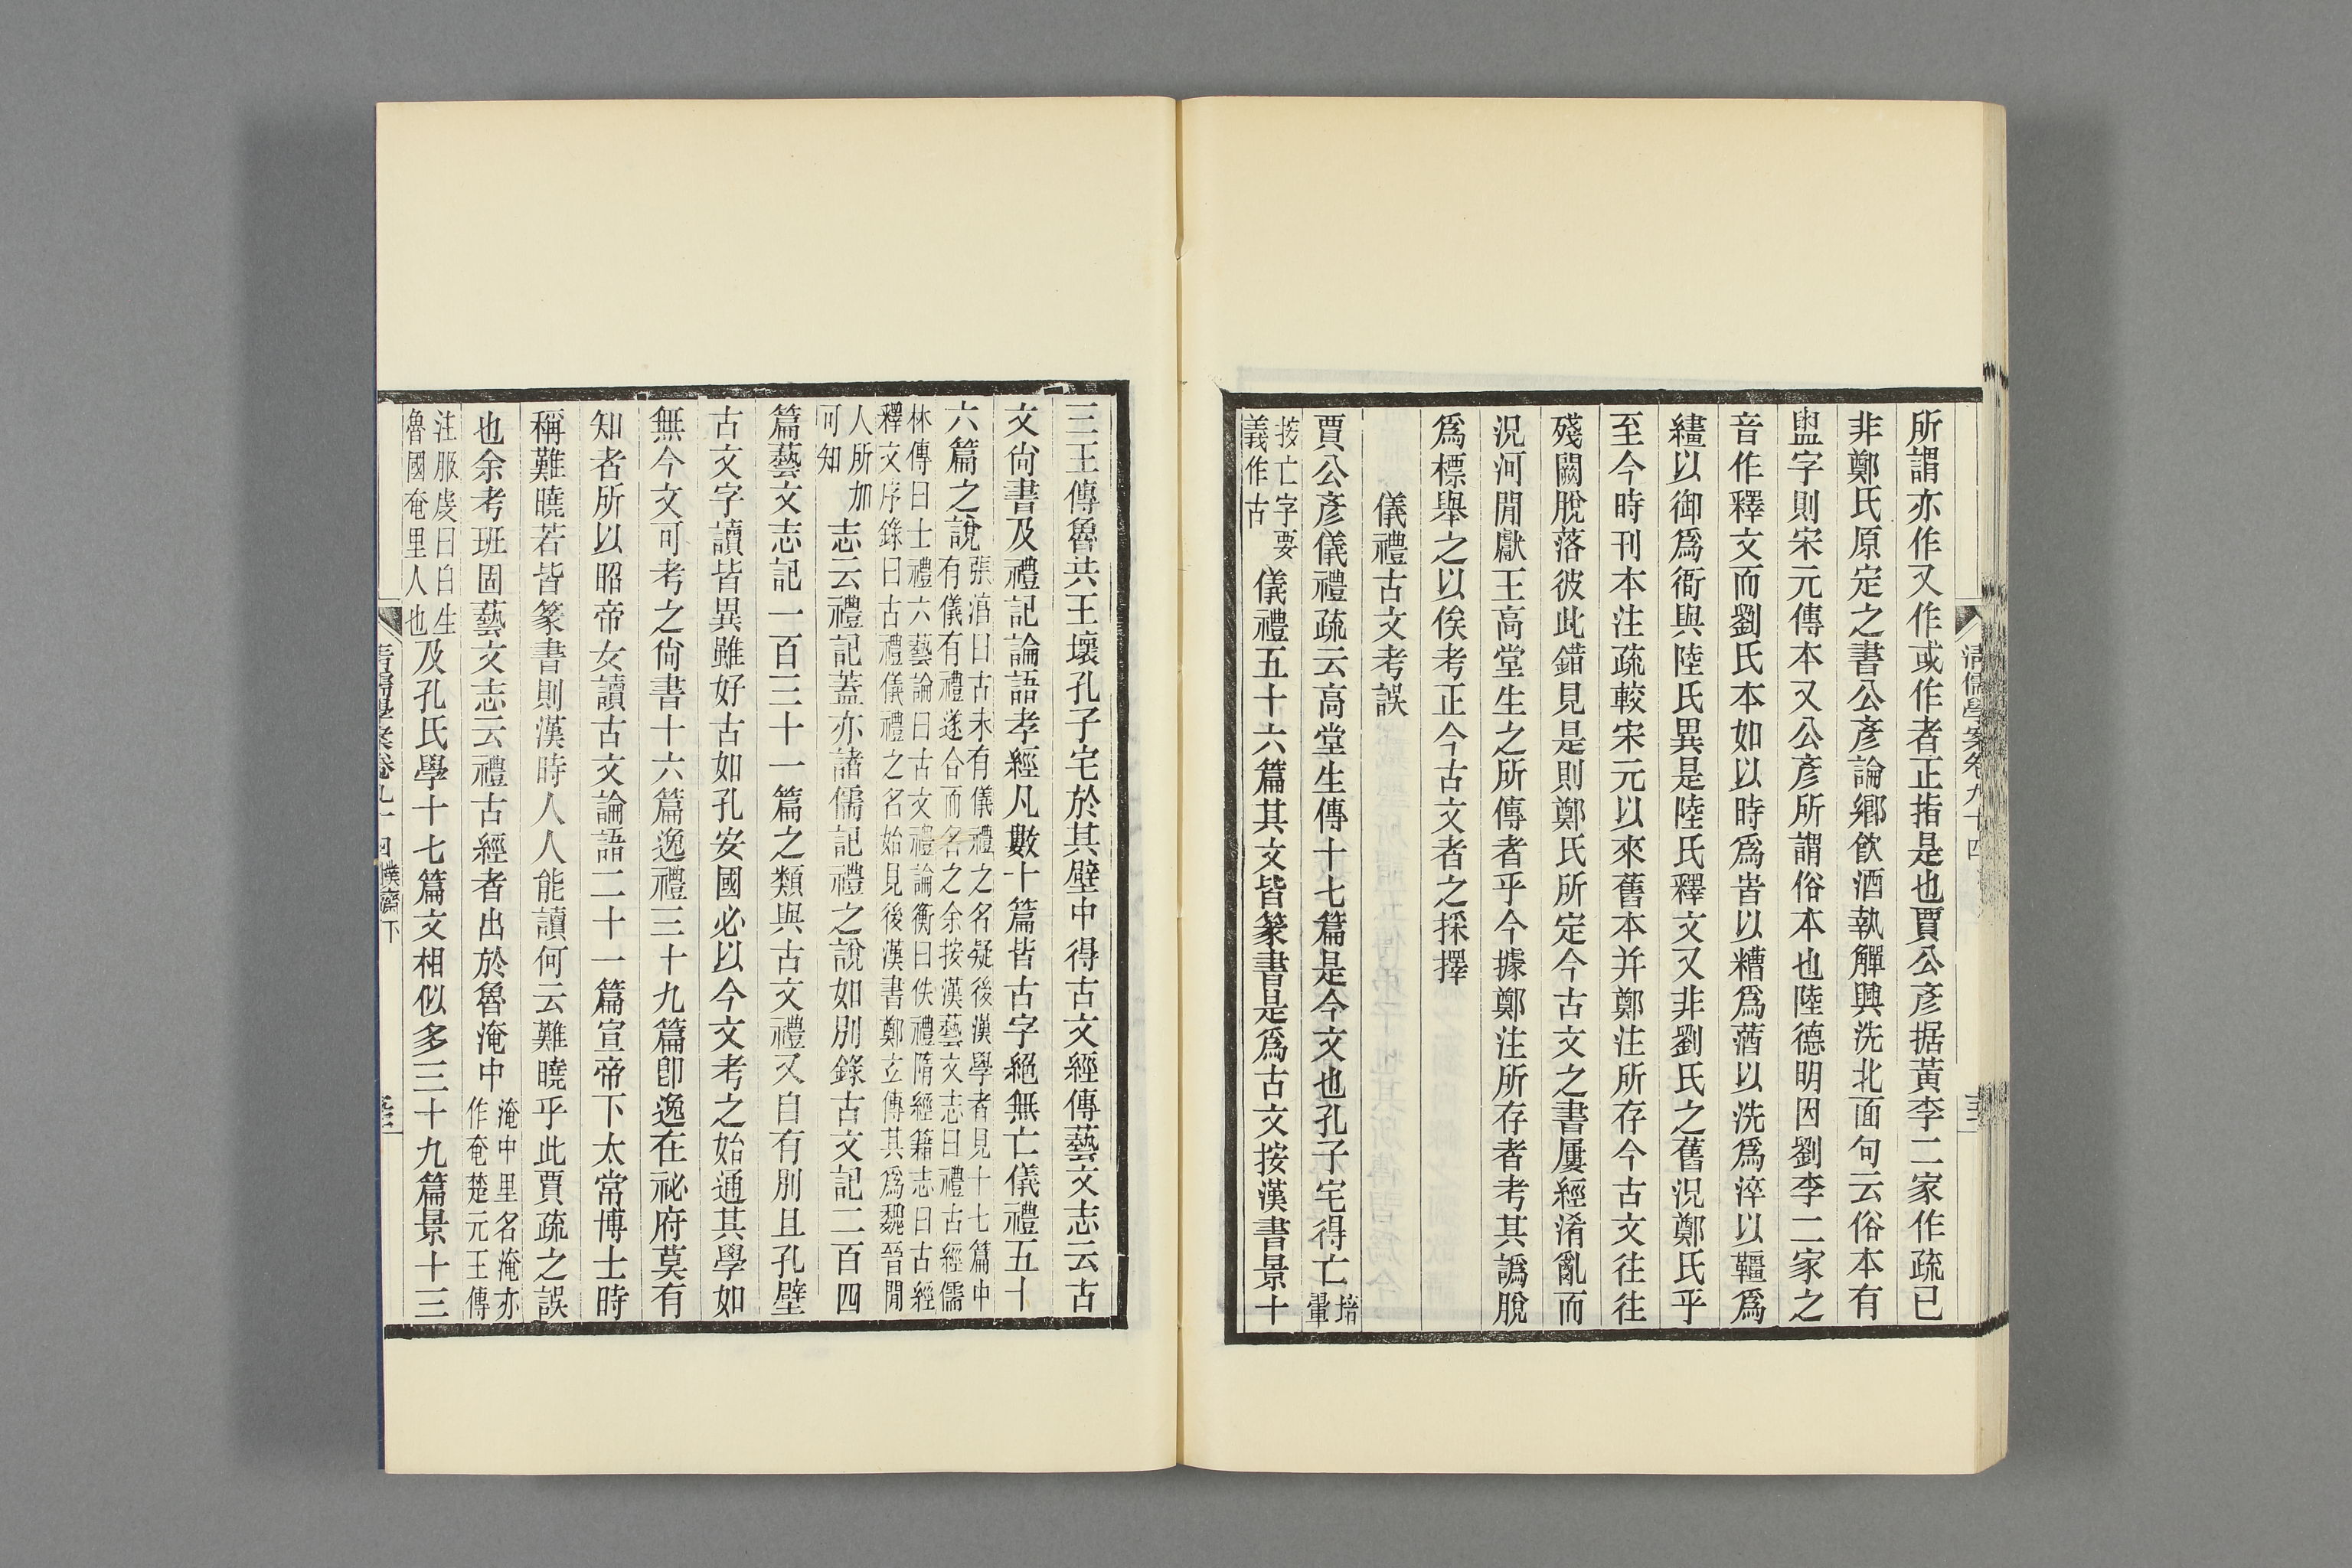 清儒學案卷九十四
所謂亦作又作或作者正指是也賈公彥据黃李二家作疏已
非鄭氏原定之書公彥論鄉飲酒執觶興洗北面句云俗本有
盥字則宋元傳本又公彥所謂俗本也陸德明因劉李二家之
音作釋文而劉氏本如以時爲旹以糟爲蕕以洗爲淬以韁爲
繮以御爲衙與陸氏異是陸氏釋文又非劉氏之舊況鄭氏乎
至今時刊本注疏較宋元以來舊本并鄭注所存今古文往往
殘闕脫落彼此錯見是則鄭氏所定今古文之書屢經淆亂而
況河閒獻王高堂生之所傳者乎今據鄭注所存者考其譌脫
爲標舉之以俟考正今古文者之採擇
儀禮古文考誤
賈公彥儀禮疏云高堂生傳十七篇是今文也孔子宅得亡墉
鞏
按亡字要
義作古
儀禮五十六篇其文皆篆書是爲古文按漢書景十
三王傳魯共王壞孔子宅於其壁中得古文經傳藝文志云古
文尙書及禮記論語孝經凡數十篇皆古字絕無亡儀禮五十
六篇之說
張淯曰古未有儀禮之名疑後漢學者見十七篇中
有儀有禮遂合而名之余按漢藝文志曰禮古經儒
林傳曰士禮六藝論曰古文禮論衡曰佚禮隋經籍志曰古經
釋文序錄曰古禮儀禮之名始見後漢書鄭玄傳其爲魏晉閒
人所加
可知
志云禮記蓋亦諸儒記禮之說如別錄古文記二百四
篇藝文志記一百三十一篇之類與古文禮又自有別且孔壁
古文字讀皆異雖好古如孔安國必以今文考之始通其學如
無今文可考之尙書十六篇逸禮三十九篇卽逸在祕府莫有
知者所以昭帝女讀古文論語二十一篇宣帝下太常博士時
稱難曉若皆篆書則漢時人人能讀何云難曉乎此賈疏之誤
也余考班固藝文志云禮古經者出於魯淹中
淹中里名淹亦
作奄楚元王傳
注服虔曰白生
魯國奄里人也
及孔氏學十七篇文相似多三十九篇景十三